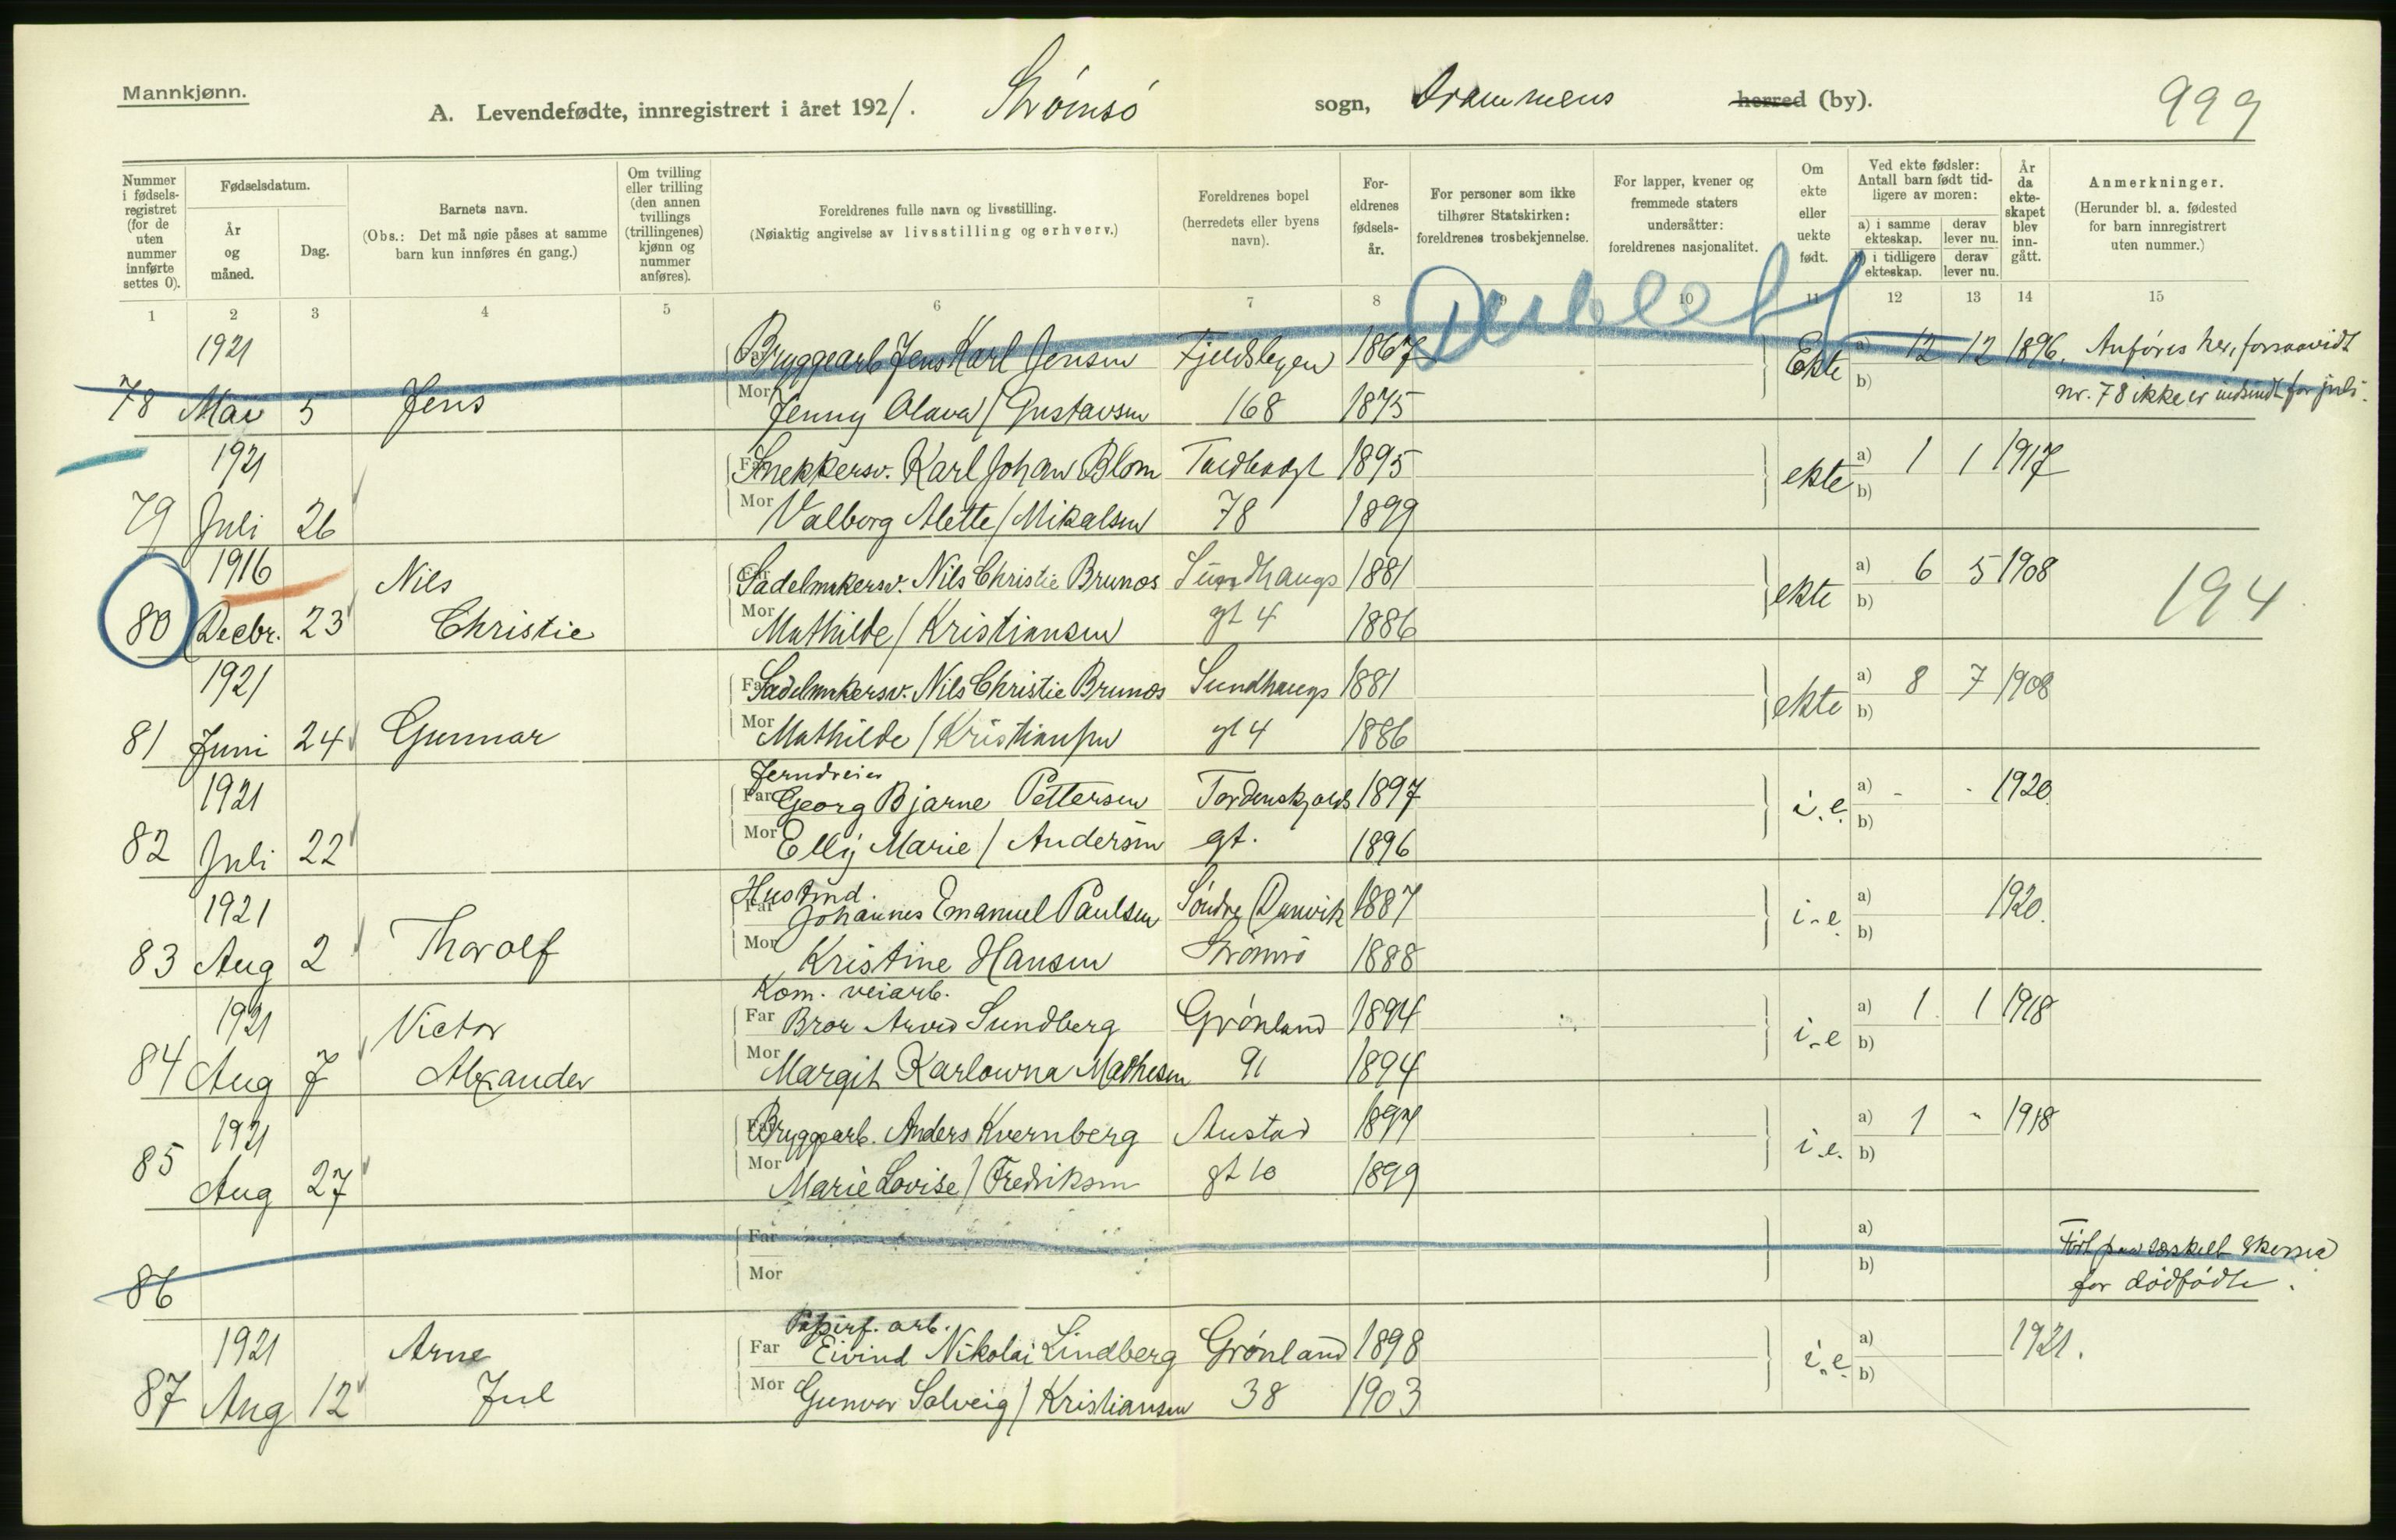 Mannkjønn.
A. Levendefødte, innregistrert i året 1921. Strømsö sogn, Drammens herred (by). 999
Nummer i fødselsregistret (for de uten nummer innførte settes 0).
Fødselsdatum.
År og måned.
Dag.
Barnets navn.
(Obs.: Det må nøie påses at samme barn kun innføres én gang.)
Om tvilling eller trilling (den annen tvillings (trillingenes) kjønn og nummer anføres).
Foreldrenes fulle navn og livsstilling.
(Nøiaktig angivelse av livsstilling og erhverv.)
Foreldrenes bopel
(herredets eller byens navn).
Foreldrenes fødselsår.
For personer som ikke tilhører Statskirken: foreldrenes trosbekjennelse.
For lapper, kvener og fremmede staters undersåtter: foreldrenes nasjonalitet.
Om ekte eller uekte født.
Ved ekte fødsler: Antall barn født tidligere av moren:
a) i samme ekteskap. derav lever nu.
b) i tidligere ekteskap. derav lever nu.
År da ekteskapet blev inngått.
Anmerkninger.
(Herunder bl. a. fødested for barn innregistrert uten nummer.)
1 2 3 4 5 6 7 8 9 10 11 12 13 14 15
1921 Far Bryggearb Jens Karl Jensen 1867 Ekte a) 12 12 1896. Anföres her, forsaavidt
78 Mai 5 Jens Mor Jenny Olava / Gustavsen 168 1875 b) nr. 78 ikke er indsendt for juli.
1921 Far Snekkersv. Karl Johan Blom 1895 ekte a) 1 1 1917
79 Juli 26 Mor Valborg Alette / Mikalsen 78 1899 b)
1916 Nils Far Sadelmakersv. Nils Christie Brunos Sundhaugs 1881 ekte a) 6 5 1908 194
80 Decbr. 23 Christie Mor Mathilde / Kristiansen gt 4 1886 b)
1921 Far Sadelmakersv. Nils Christie Brunos Sundhaugs 1881 ekte a) 8 7 1908
81 Juni 24 Gunnar Mor Mathilde / Kristiansen gt 4 1886 b)
Jerndreier
1921 Far Georg Bjarne Pettersen Tordenskjolds 1897 i.e. a) - - 1920.
82 Juli 22 Mor Elly Marie / Andersen gt. 1896 b)
Hustømd.
1921 Far Johannes Emanuel Paulsen Søndre Danvik 1887 i.e. a) 1920.
83 Aug 2 Thorolf Mor Kristine Hansen Strømsö 1888 b)
Kom. veiarb.
1921 Victor Far Bror Arvid Sundberg Grönland 1894 i.e a) 1 1 1918
84 Aug 7 Alexander Mor Margit Karlowna Mathesen 91 1894 b)
1921 Far Bryggearb. Anders Kvernberg Austad 1894 i.e. a) 1 - 1918
85 Aug 27 Mor Marie Lovise / Fredriksen gt 10 1899 b)
Far a) Fört paa særskilt skema
86 Mor b) for dödfödte.
Papirf. arb.
1921 Arne Far Eivind Nikolai Lindberg Grönland 1898 i.e. a) 1921.
87 Aug 12 Jul Mor Gunvor Solveig / Kristiansen 38 1903 b)